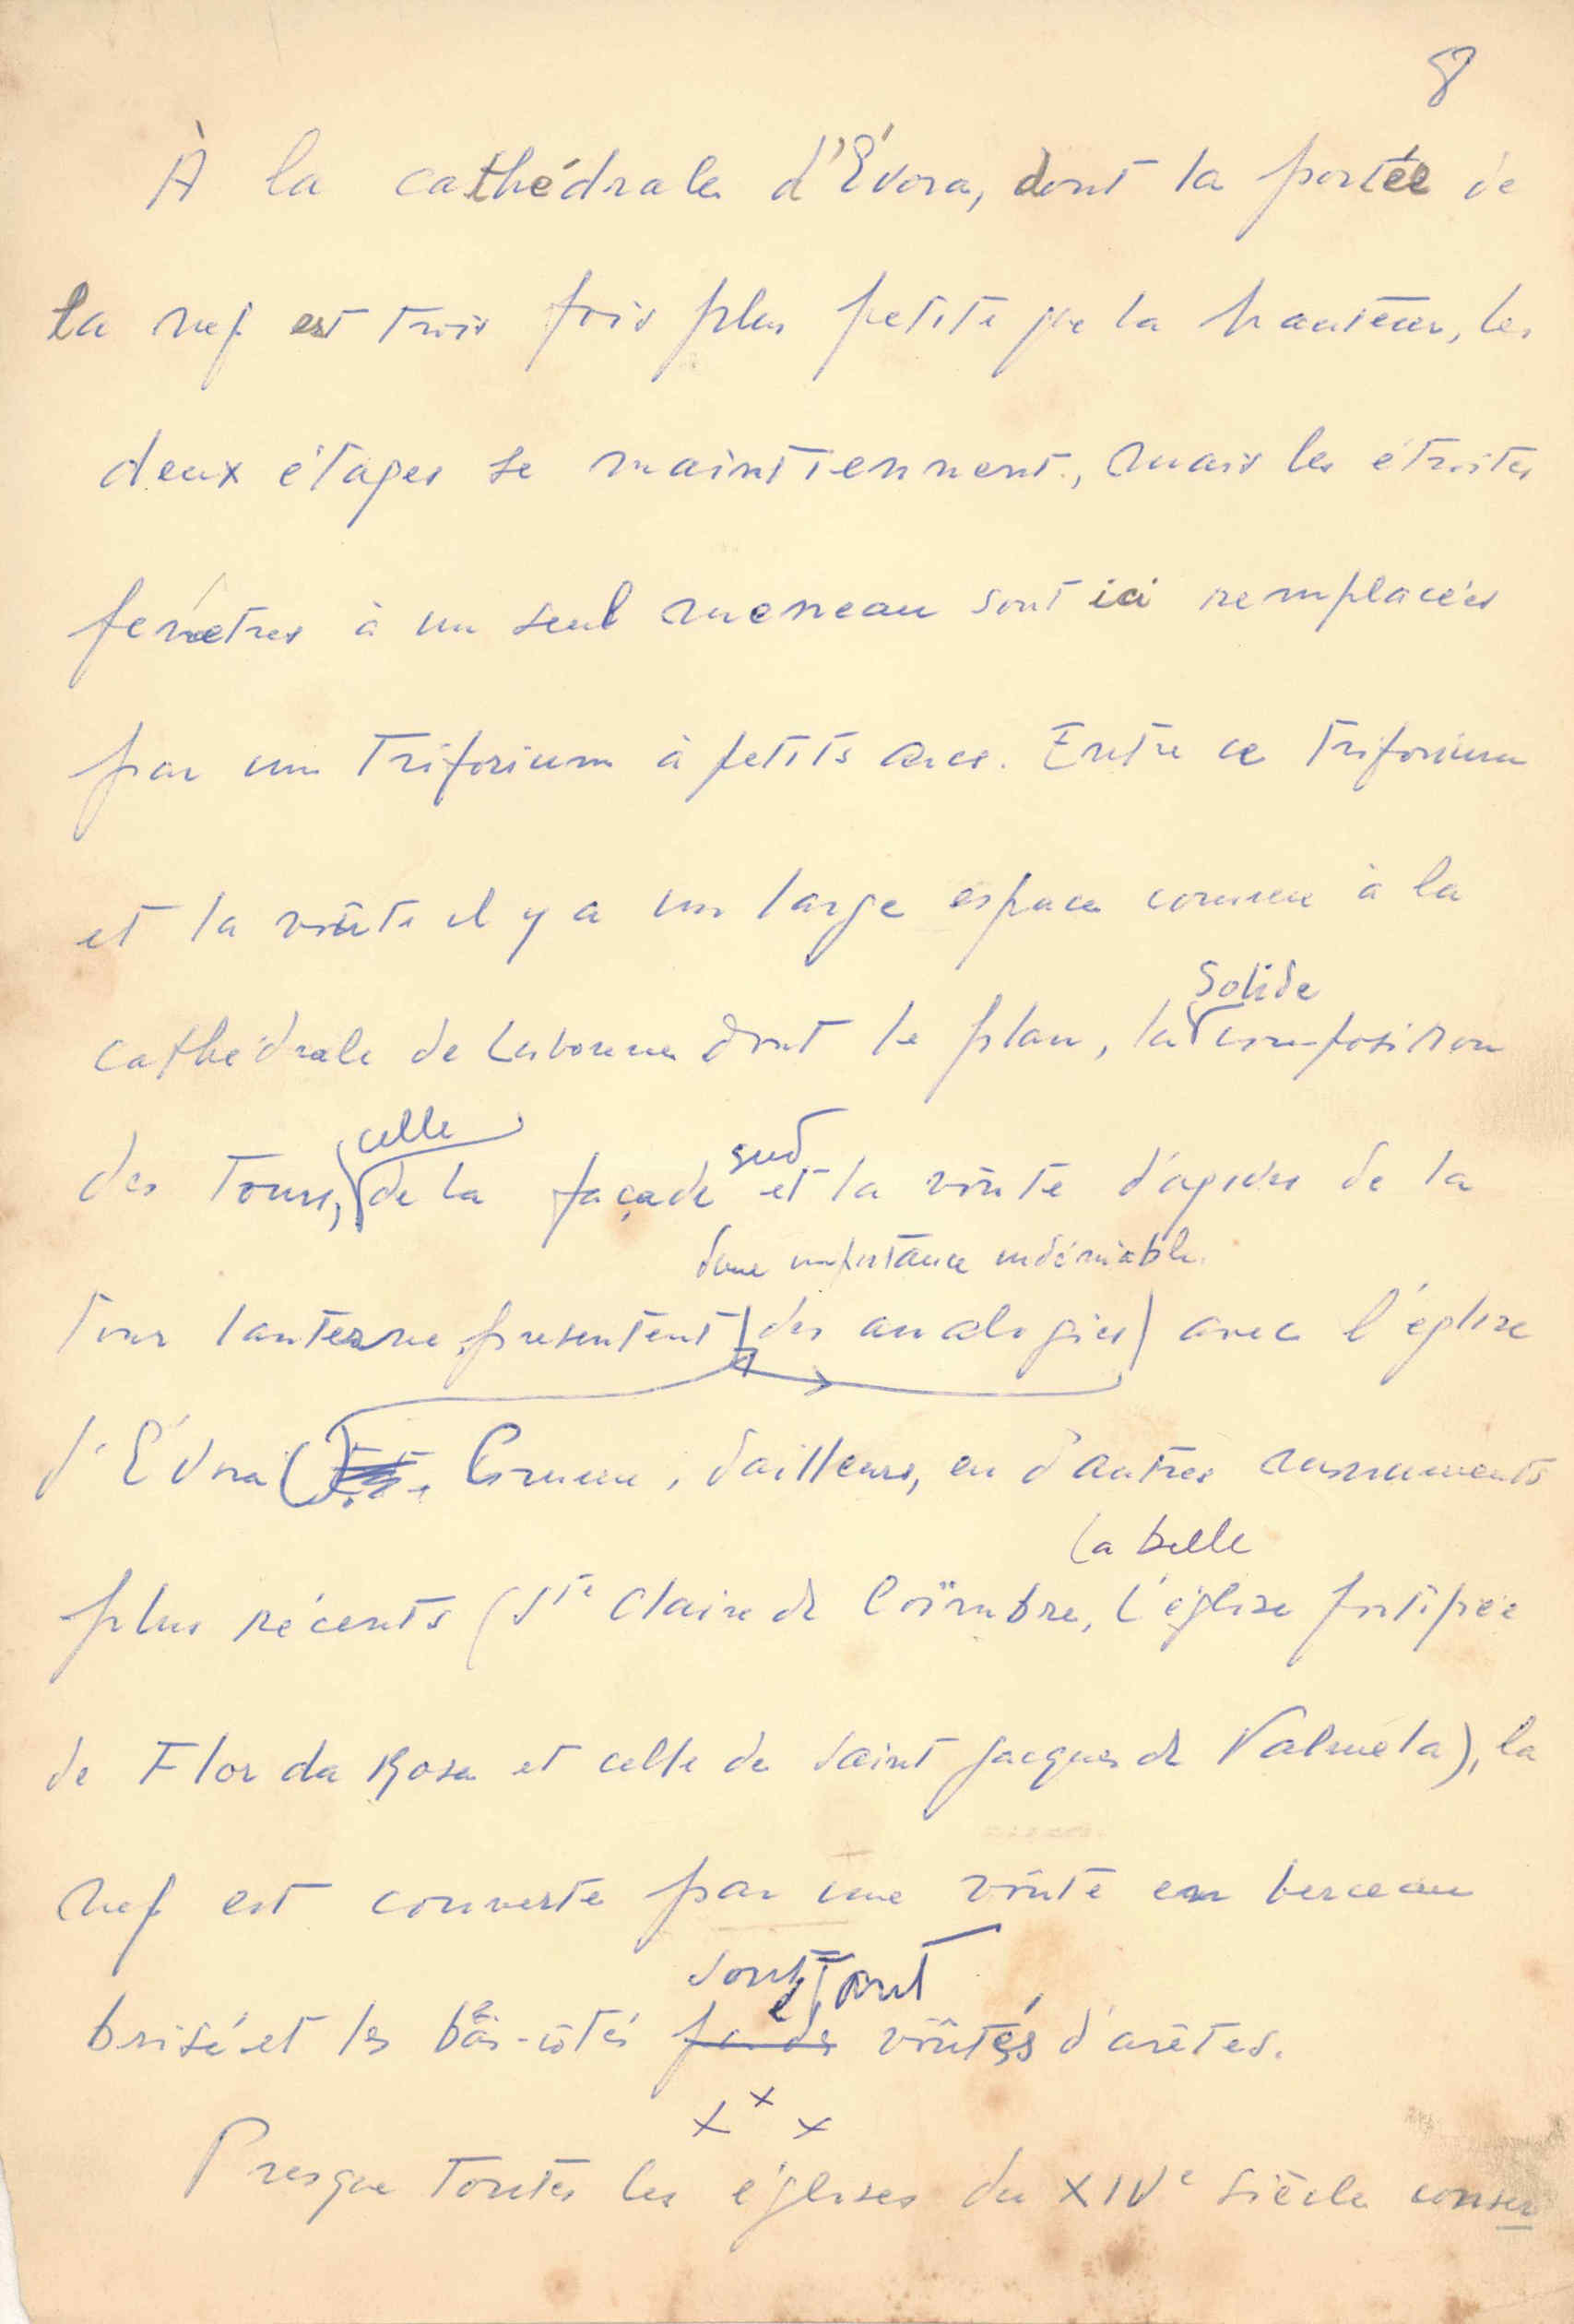 8
À la cathédrale d'Évora, dont la portée de
la nef est trois fois plus petite que la hauteur, les
deux étages se maintiennent, mais les étroites
fenêtres à un seul meneau sont ici remplacées
par un triforium à petits arcs. Entre ce triforium
et la voûte il y a un large espace comme à la
solide
cathédrale de Lisbonne dont le plan, la composition
celle sud
des tours, de la façade et la voûte d'ogives de la
d'une importance indéniable
tour lanterne présentent des analogies avec l'église
d'Évora. Comme, d'ailleurs, en d'autres monuments
la belle
plus récents (Ste Claire de Coïmbre, l'église fortifiée
de Flor da Rosa et celle de Saint Jacques de Palmela), la
nef est couverte par une voûte en berceau
sont
brisé et les bas-côtés voûtés d'arêtes.
x x x
Presque toutes les églises du XIVe siècle conser